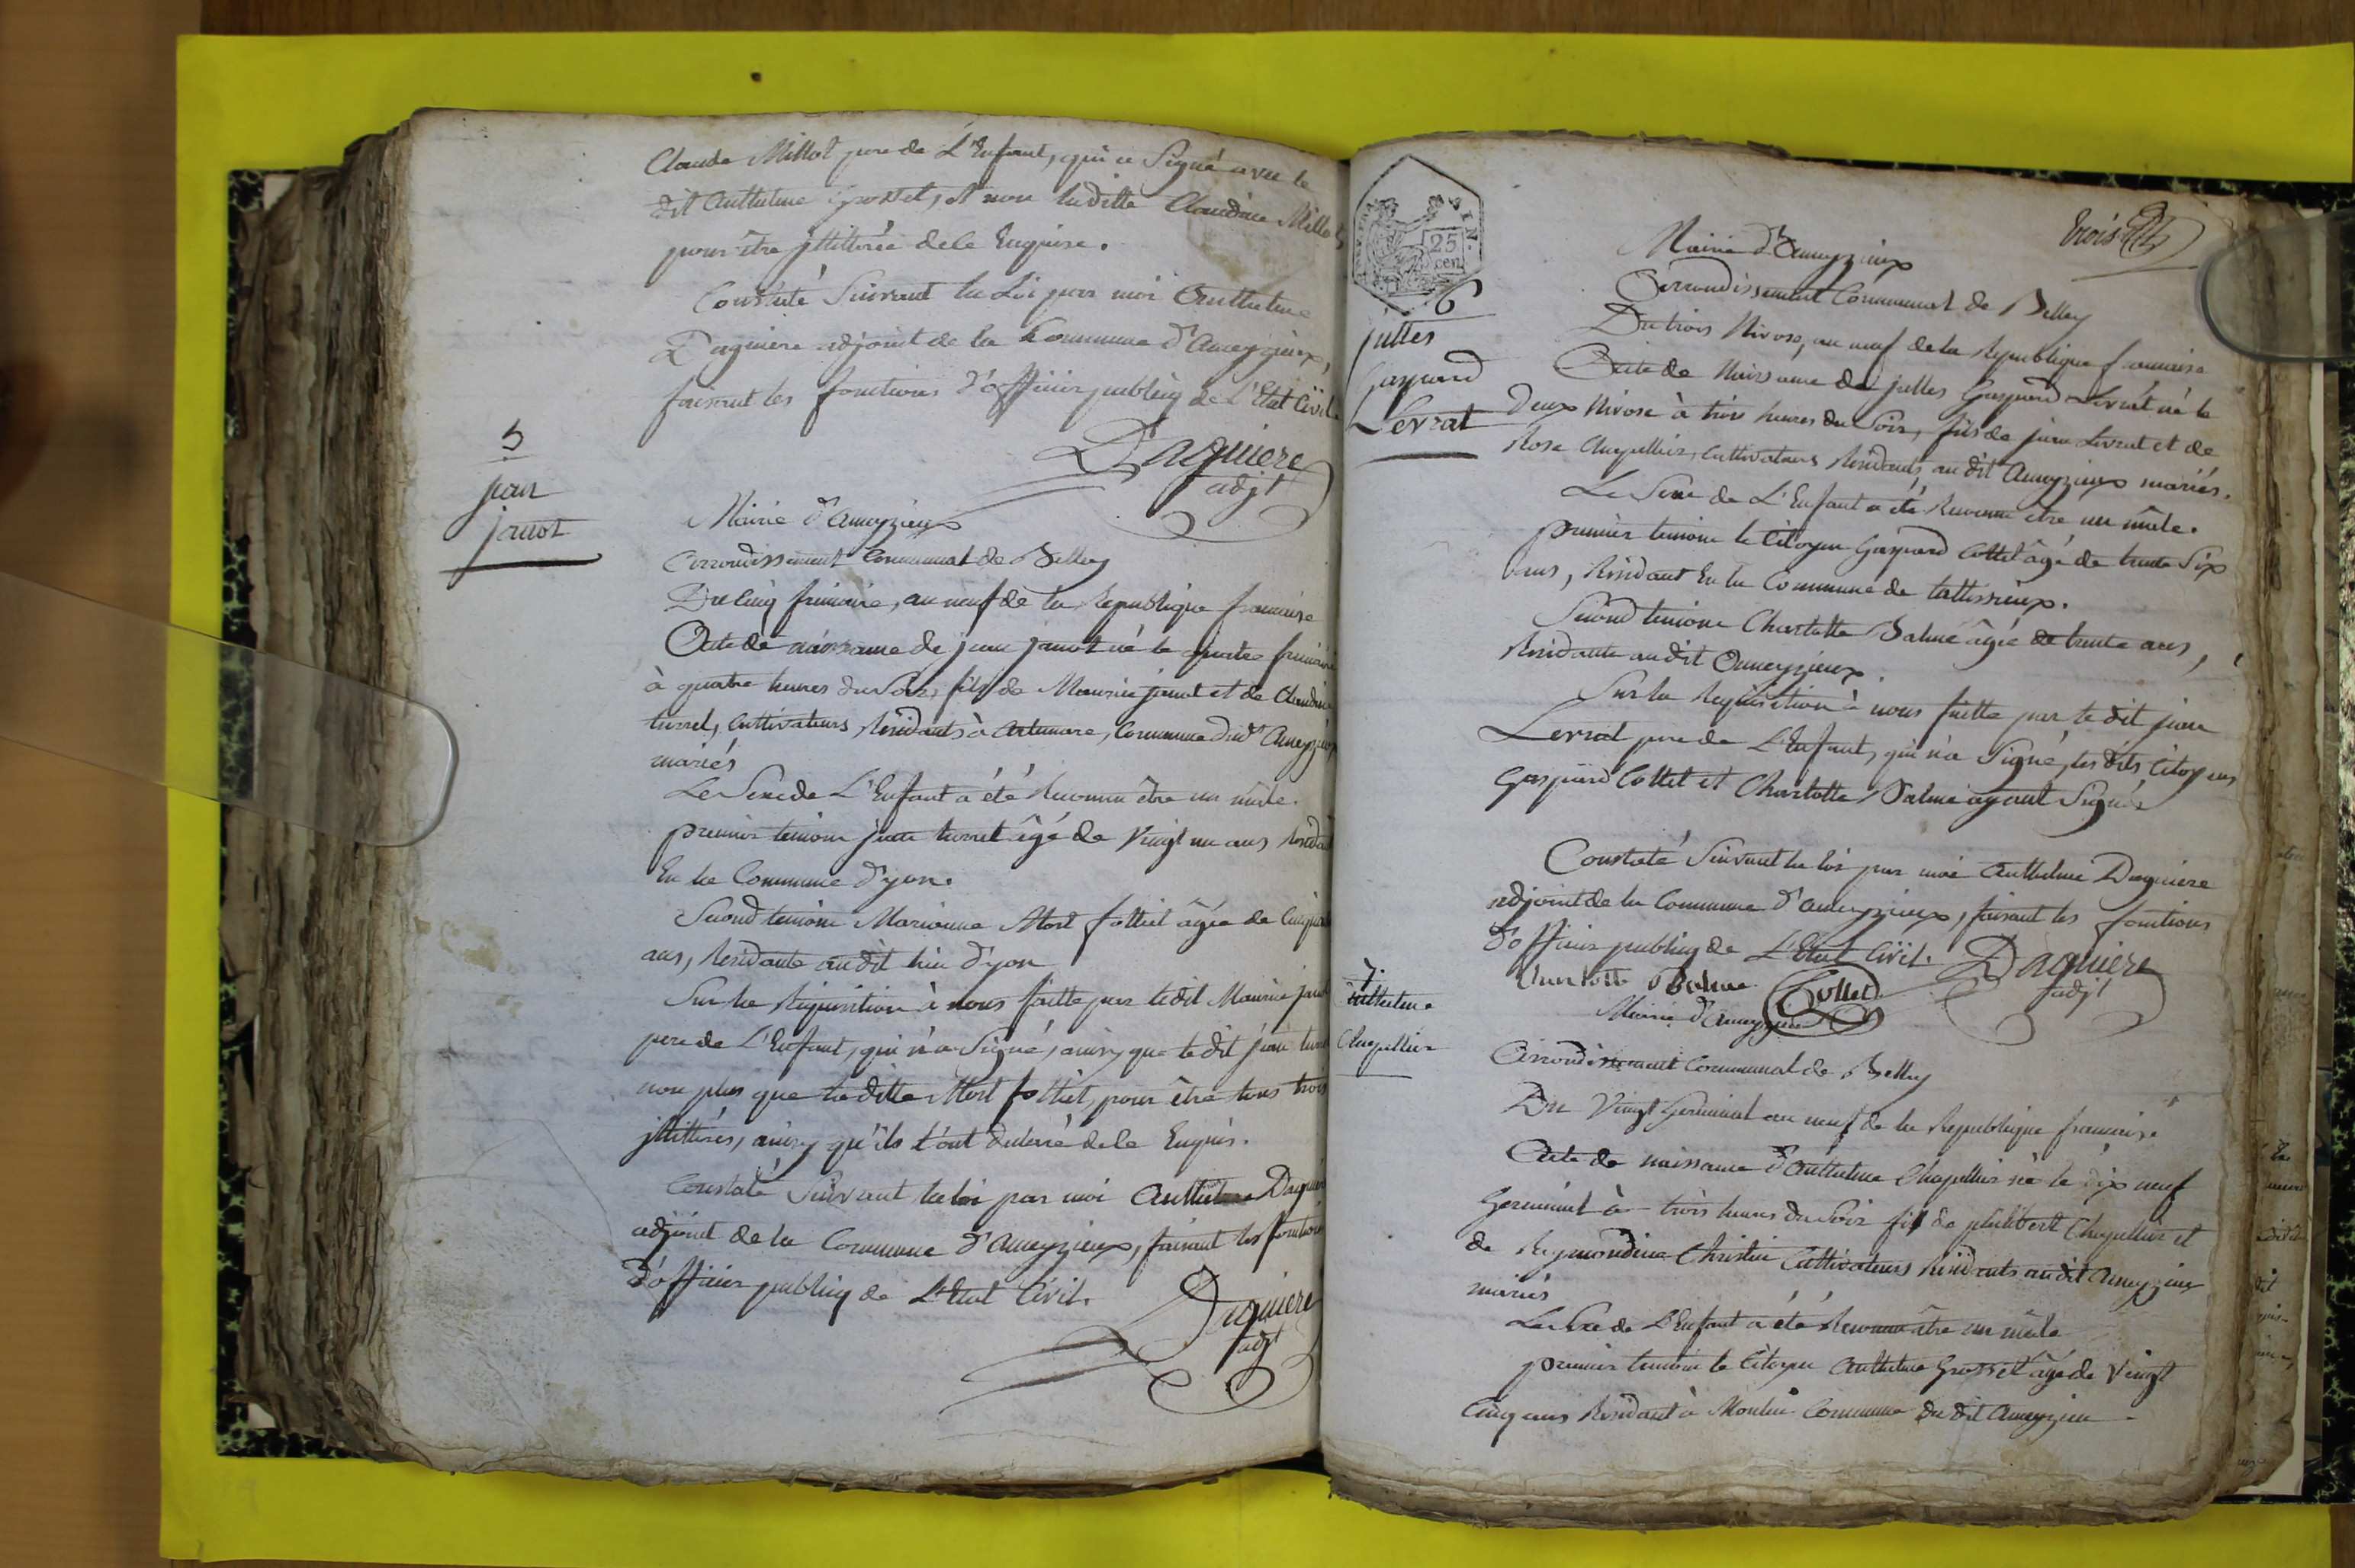 Claude Millot pere de L'Enfant, qui a Signé avec le
dit Anthelme Grosset, et non la ditte Claudine Millot
pour être jllitterée de ce Enquise.
Constaté Suivant la Loi par moi Anthelme
Daguiere adjoint de la Commune d'Ameyzieux,
faisant les fonctions d'officier publicq de L'Etat Civil.
Daguiere
adjt
5
jean
janot
Mairie d'Ameyzieux
Arrondissement Communal de Belley
Du Cinq frimaire, an neuf de la Republique francaise
Acte de naissance de jean janot né le quatre frimaire
à quatre heures du Soir, fils de Maurice janot et de Claudine
turrel, Cultivateurs Residants à Artemare, Commune dud't Ameyzieux
mariés
Le Sexe de L'Enfant a été Reconnu être un mâle.
premier temoin jean turrel âgé de Vingt un ans Residant
En la Commune d'yon.
Second temoin Marianne Mort folliet âgée de Cinquante
ans, Residante au dit lieu d'yon
Sur la Requisition à nous faitte par le dit Maurice janot
pere de L'Enfant, qui n'a Signé, ainsy que le dit jean turrel
non plus que la ditte Mort folliet, pour être tous trois
jllittérés, ainsy qu'ils l'ont declaré de ce Enquis.
Constaté Suivant la loi par moi Anthelme Daguiere
adjoint de la Commune d'Ameyzieux, faisant les fonctions
d'officier publicq de L'Etat Civil.
Daguiere
adjt
trois
25
cen
6
julles
Gaspard
Levrat
Mairie d'Ameyzieux
Arrondissement Communal de Belley
Du trois Nivose, an neuf de la Republique francaise
Acte de Naissance de julles Gaspard Levrat né le
Deux Nivose à trois heures du Soir, fils de jean Levrat et de
Rose Chapellier, Cultivateurs Residants au dit Ameyzieux mariés.
Le Sexe de L'Enfant a été Reconnu être un mâle.
premier temoin le Citoyen Gaspard Collet âgé de trente Six
ans, Residant En la Commune de talissieux.
Second temoin Charlotte Balme âgée de trente ans,
Residante au dit Ameyzieux.
Sur la Requisition à nous faitte par le dit jean
Levrat pere de L'Enfant, qui n'a Signé, les dits Citoyens
Gaspard Collet et Charlotte Balme ayant Signés
Constaté Suivant la loi par moi Anthelme Daguiere
adjoint de la Commune d'Ameyzieux, faisant les fonctions
d'officier publicq de L'Etat Civil.
Daguiere
adjt
Charlotte Balme
Collet
7.
Anthelme
Chapellier
Mairie d'Ameyzieux
Arrondissement Communal de Belley
Du Vingt Germinal an neuf de la Republique francaise
Acte de naissance d'Anthelme Chapellier né le dix neuf
Germinal à trois heures du Soir fils de philibert Chapellier et
de Reymondine Christin Cultivateurs Residants au dit Ameyzieux
mariés
Le Sexe de L'Enfant a été Reconnu être un mâle
premier temoin le Citoyen Anthelme Grosset âgé de Vingt
Cinq ans Residant à Moulin Commune du dit Ameyzieu